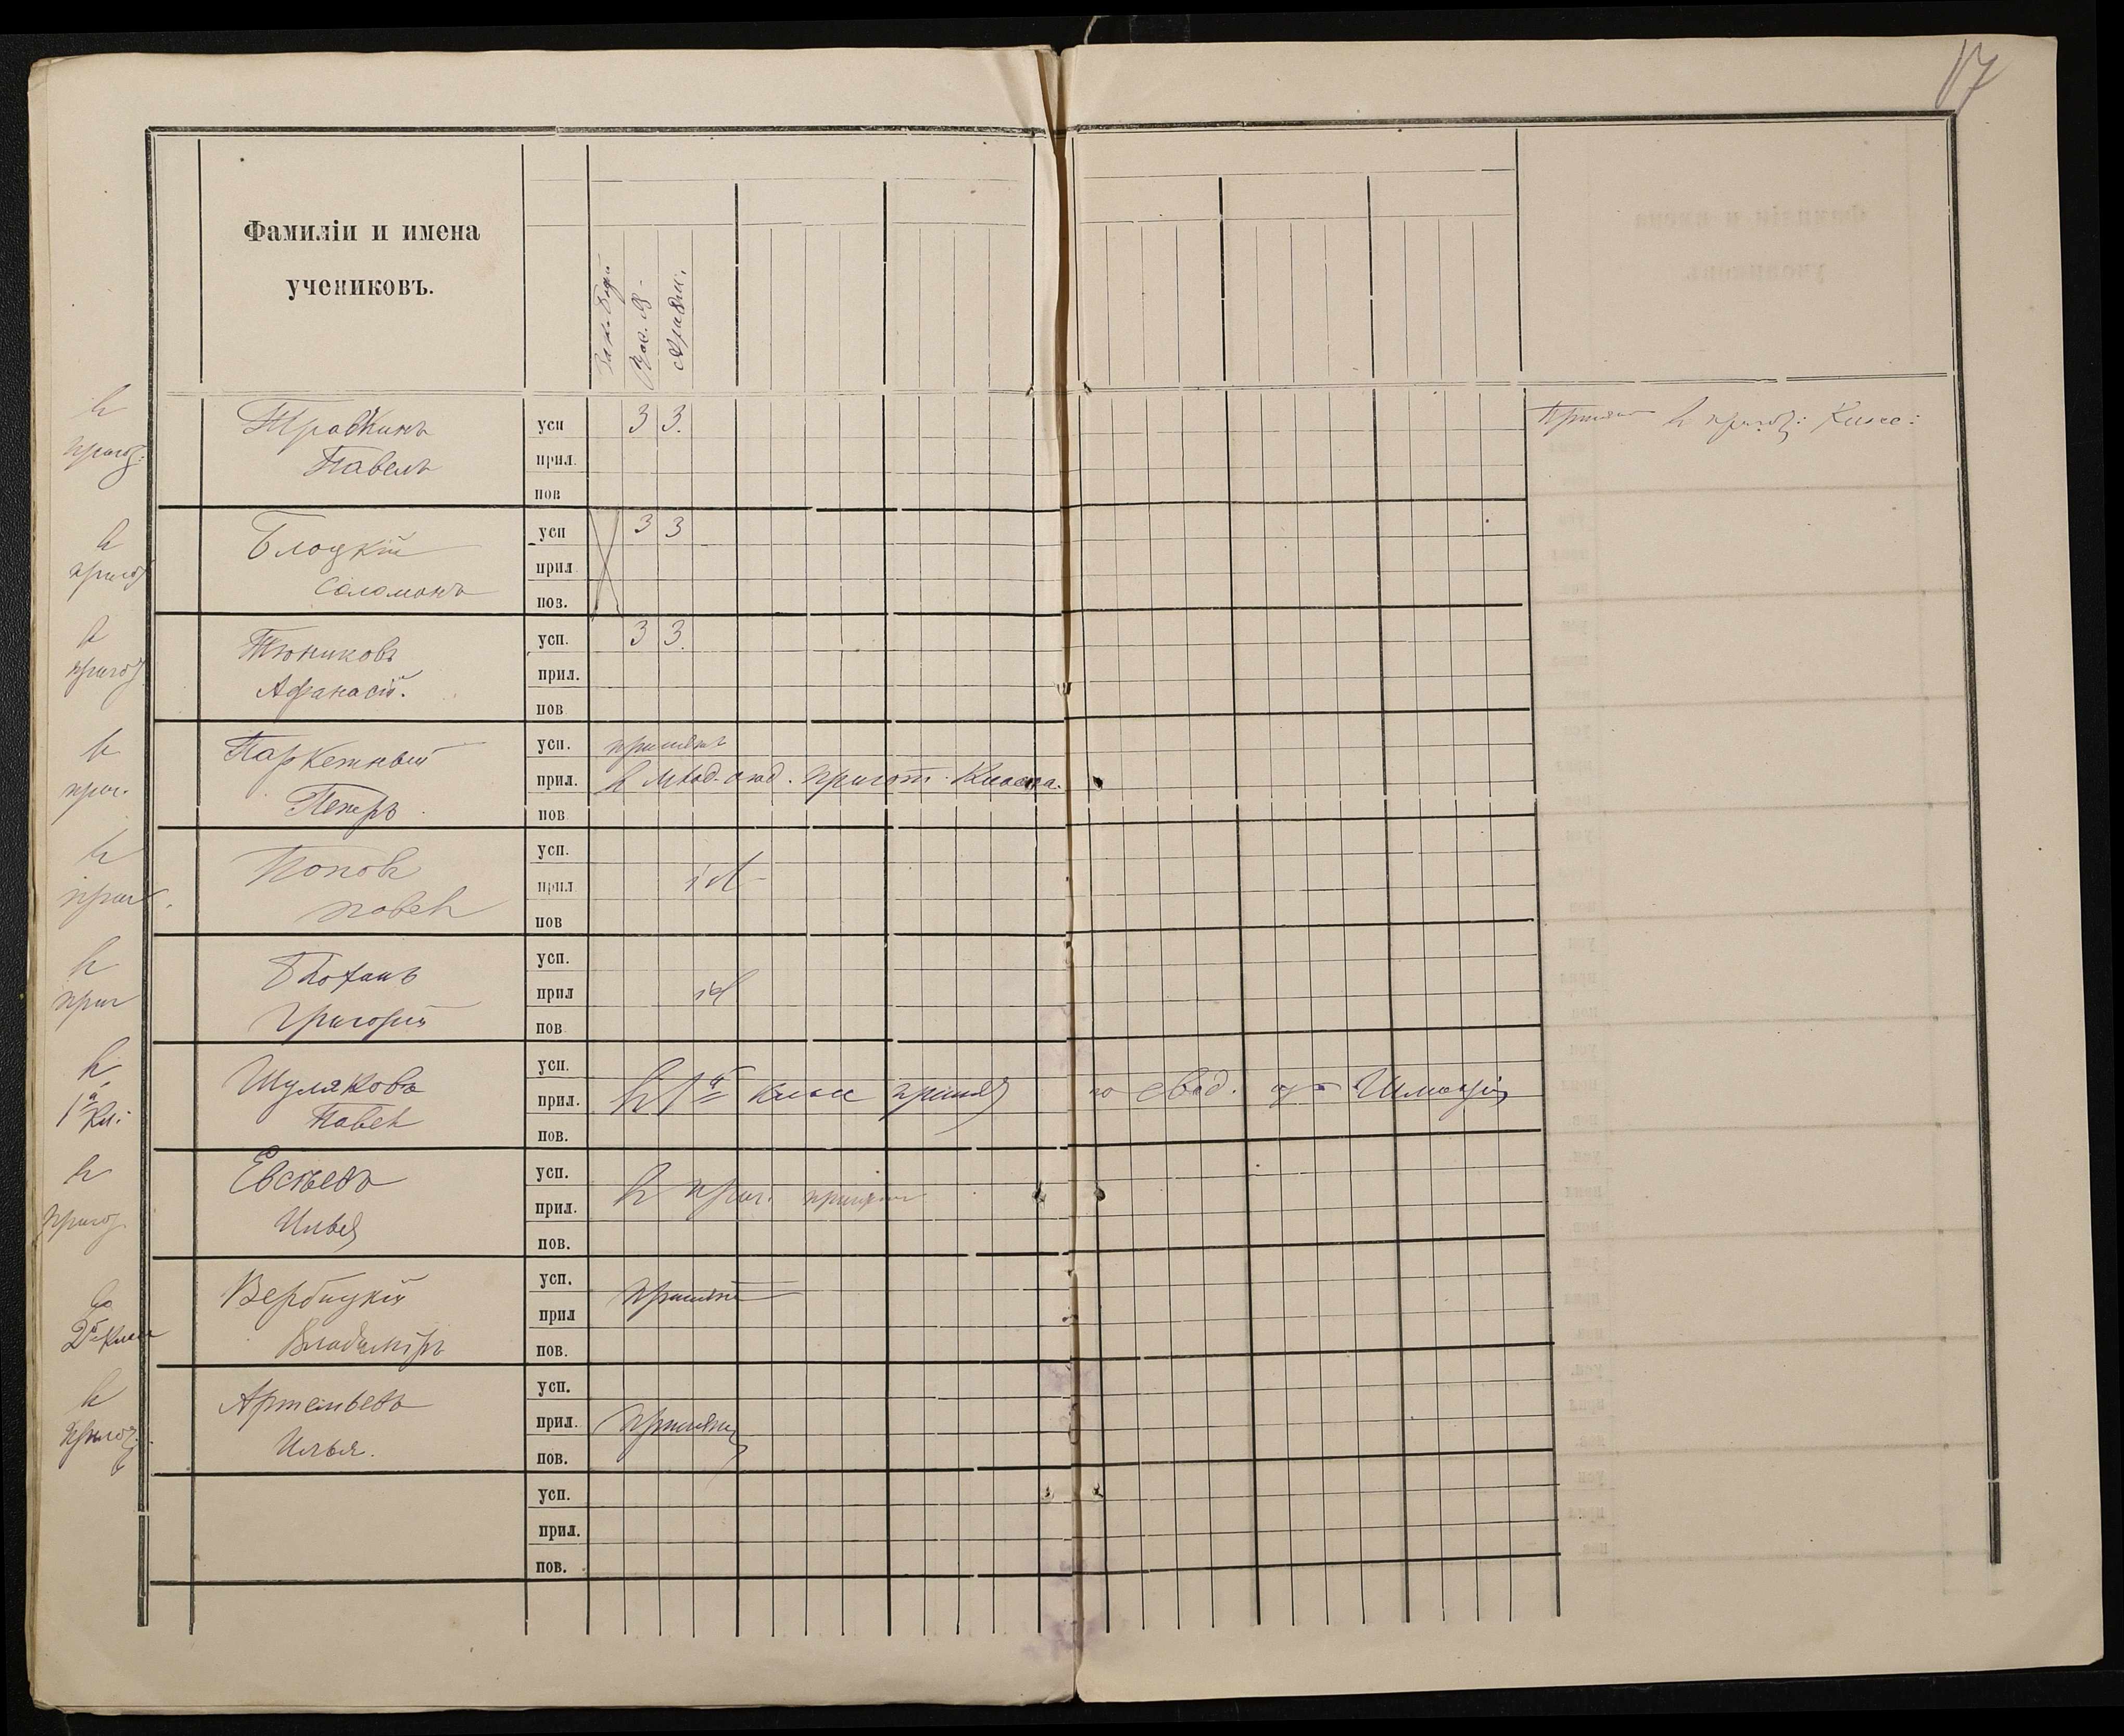 17
Фамиліи и имена
учениковъ.
Зак. Бож
Рос. Яз.
Ариѳм.
въ
пригот:
Травкинъ
Павелъ
усп 3 3.
прил.
пов
Принятъ въ пригот: Классъ:
въ
пригот
Блоцкій
Соломонъ
усп 3 3
прил
пов.
въ
пригот
Тюниковъ
Афанасій.
усп. 3 3.
прил.
пов
въ
приг.
Паркетный
Петръ
усп. принятъ
прил. въ млад. отд. пригот. Класса.
пов
въ
приг.
Поповъ
Павелъ
усп.
прил id
пов
въ
приг
Григорій
усп.
прил id
пов
въ
1й Кл:
Шуляковъ
Павелъ
усп.
прил. въ 1й классъ принятъ по свид. изъ
пов.
въ
пригот
Евсѣевъ
Илья
усп.
прил. въ приг. принятъ
пов.
во
2й Классъ
Вербицкій
Владиміръ
усп. принятъ
прил
пов.
въ
пригот.
Артемьевъ
Илья.
усп.
прил. принятъ
пов.
усп.
прил.
пов.